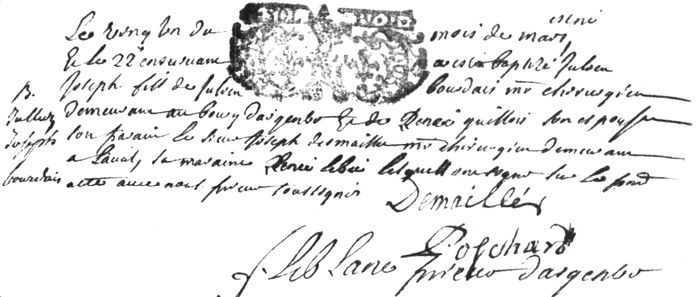 Le vingt un du mois de mars, est né
& le 22e ensuivant a esté baptizé Julien
Joseph fill de Julien bourdais mr chirurgien
B. demeurant au bourg dargenbo & de Renée quillois son espouse
Julien Joseph bourdais
son parain le sieur Joseph demaillé mr chirurgien demeurant
a Laval, sa maraine Renée lesquell ont signé sur le
acte avec nous prieur soussignés
Demaillé
J. leblanc
prieur dargenbo